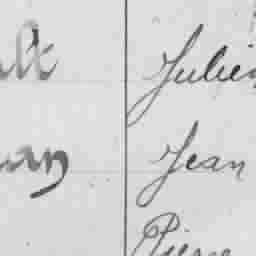 ult Julien
uan Jean
Pierre